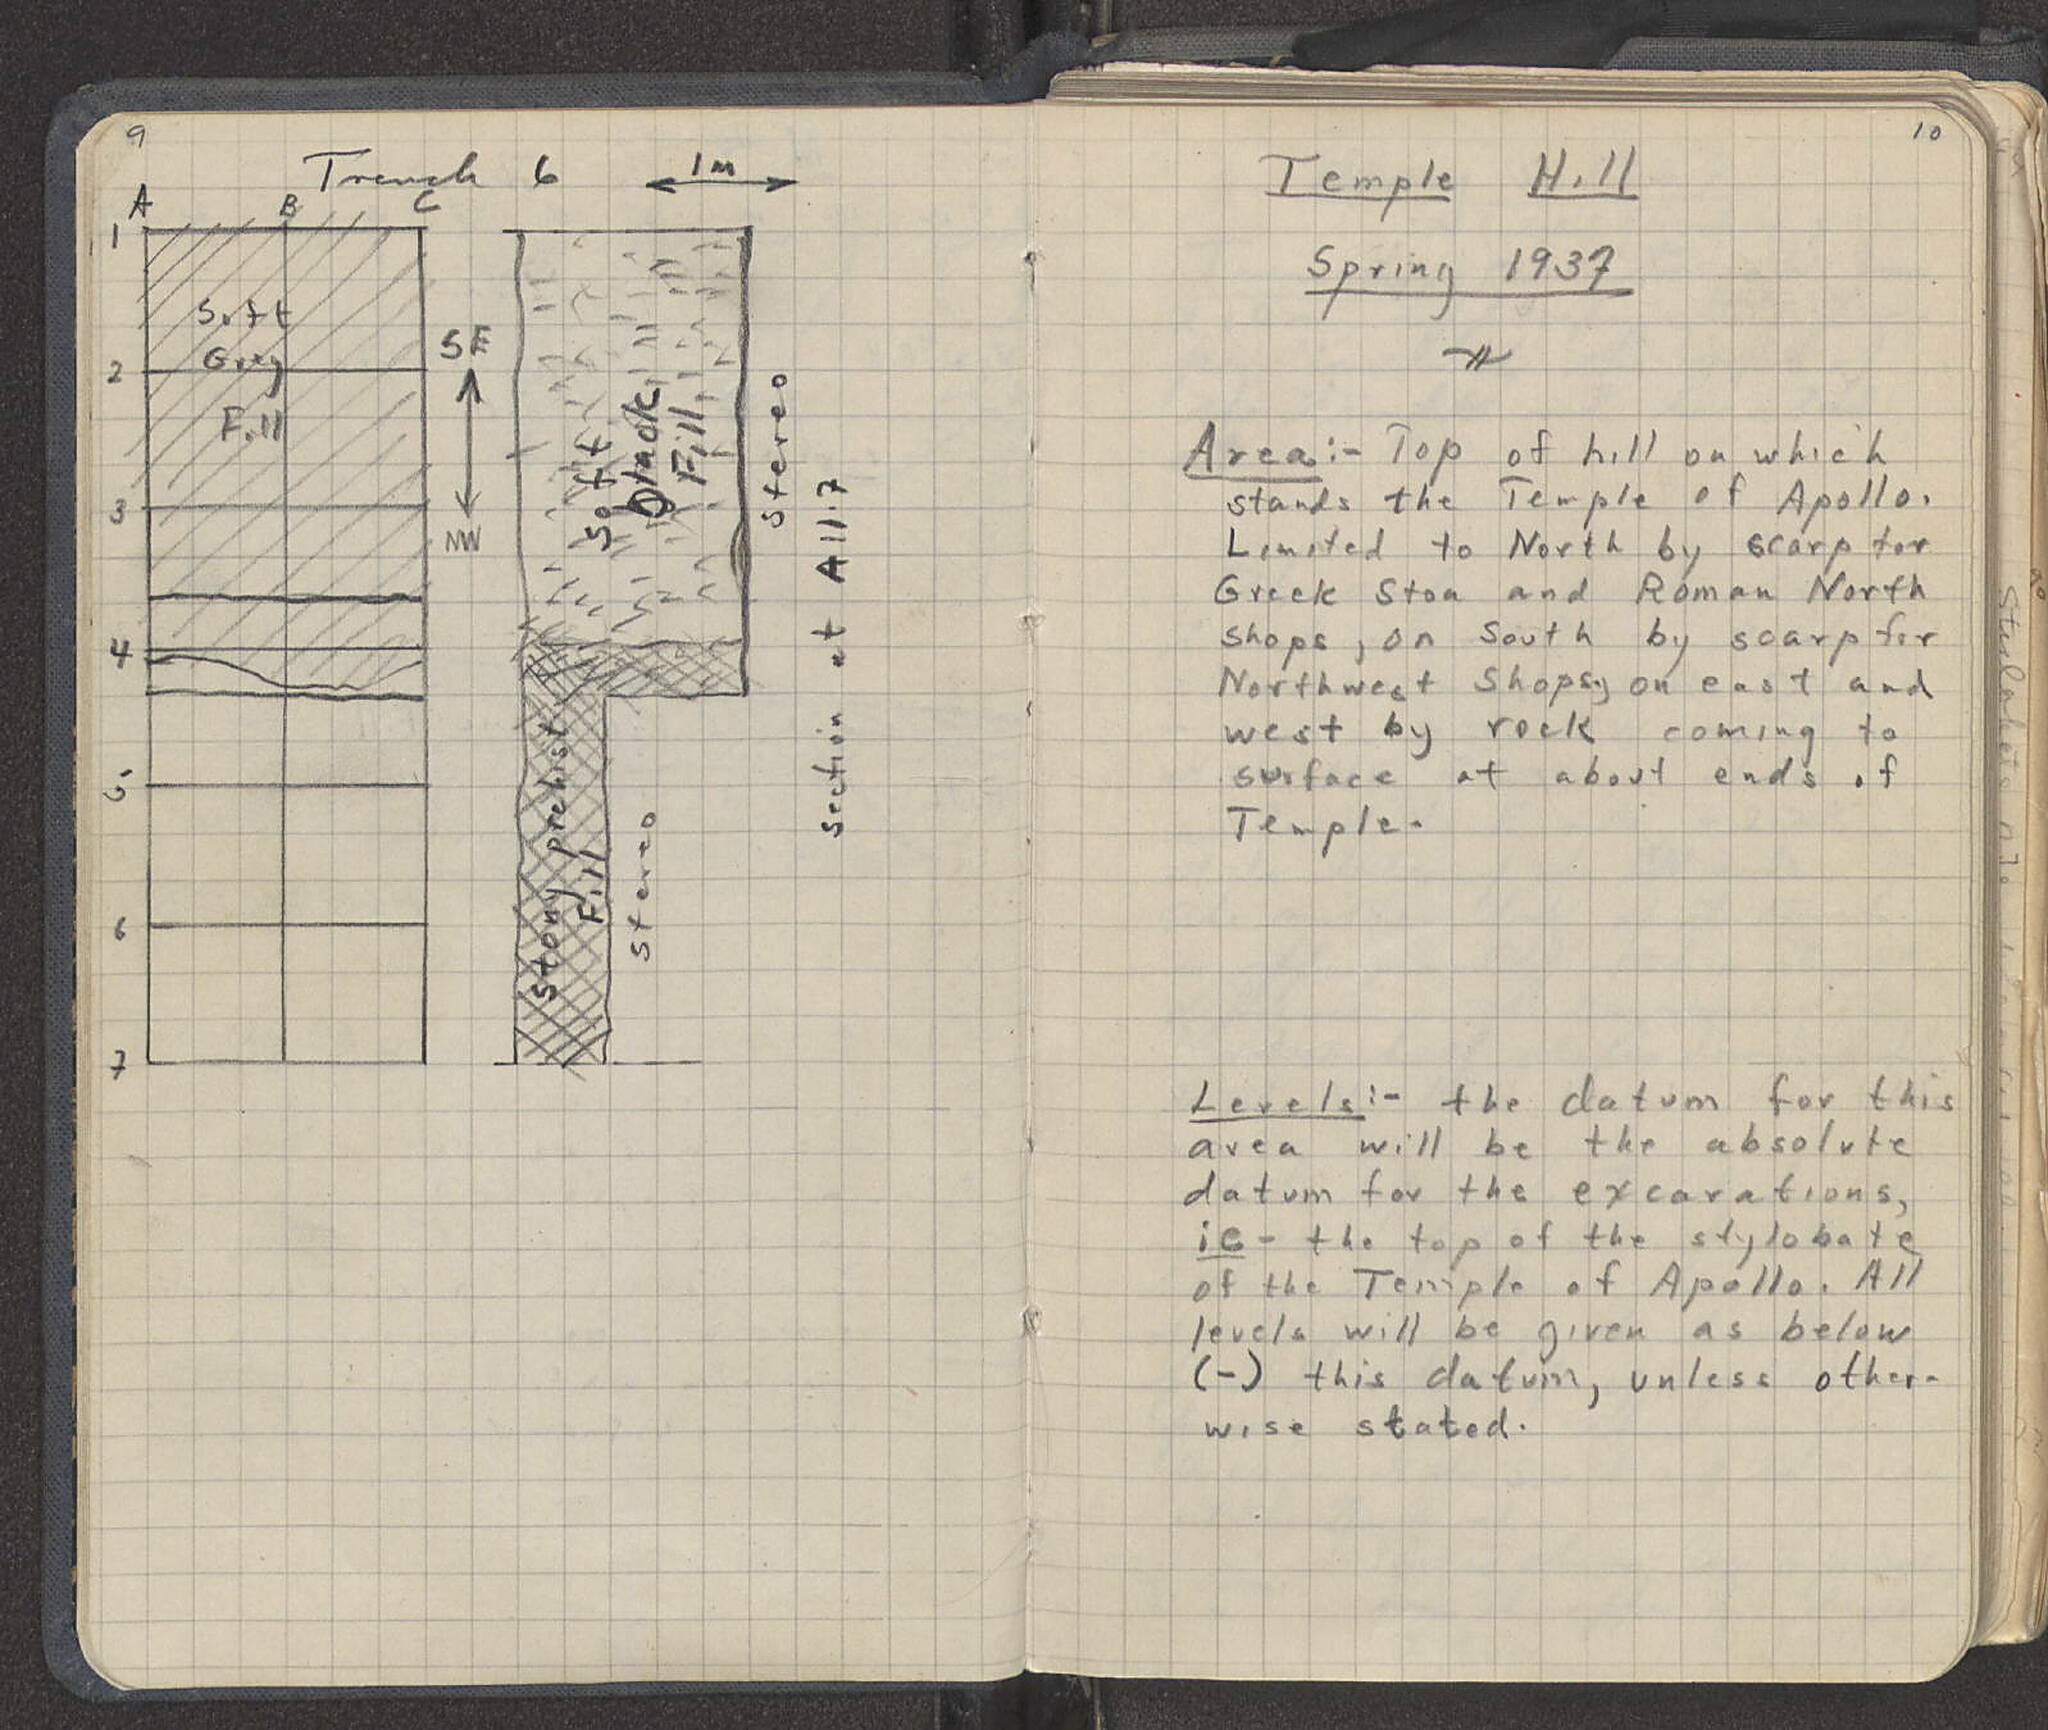 9
Trench 6
1m
A B C
1
Soft
Grey
Fill
2
3
4
5
6
7
SE
NW
Soft
black
Fill
stereo
stony prehist
Fill
stereo
section at A11-7
10
Temple Hill
Spring 1937
Area:- Top of hill on which
stands the Temple of Apollo.
Limited to North by scarp for
Greek Stoa and Roman North
shops, on South by scarp for
Northwest Shops, on east and
west by rock coming to
surface at about ends of
Temple.
Levels:- the datum for this
area will be the absolute
datum for the excavations,
ie - the top of the stylobate
of the Temple of Apollo. All
levels will be given as below
(-) this datum, unless other-
wise stated.